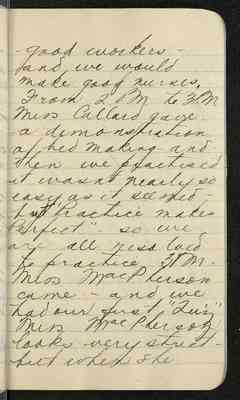 - good workers -
and we would
make good nurses.
From 2 P.M to 3 P.M
Miss Callard gave
a demonstration
of bed making and
then we practised
it wasn't nearly so
easy as it seemed,
but "Practice makes
Perfect" - so we
are all resolved
to practice. 3 P.M.
Miss MacPherson
came - and we
had our first "Quiz"
Miss MacPherson
looks very strict -
but when she